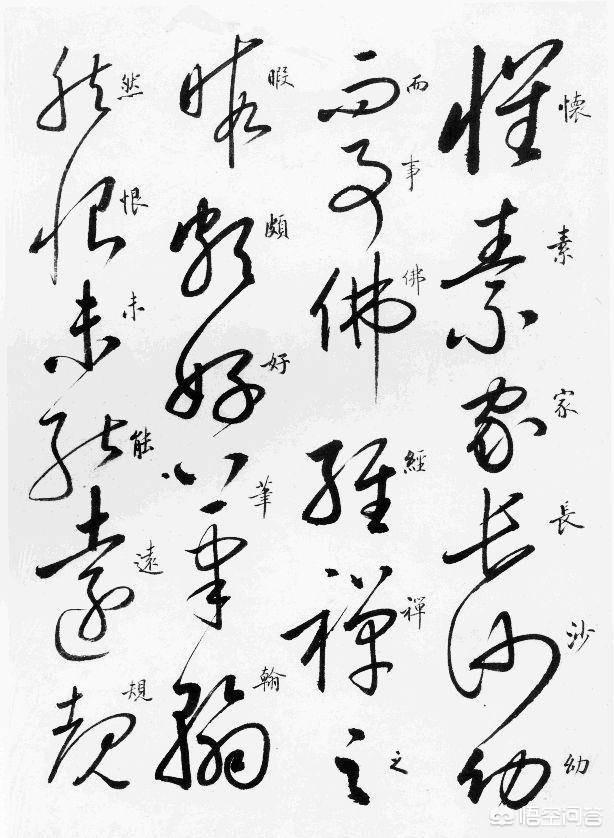 懷素家長沙幼
而事佛經禪之
暇頗好筆翰
然恨未能遠規
悟空问答